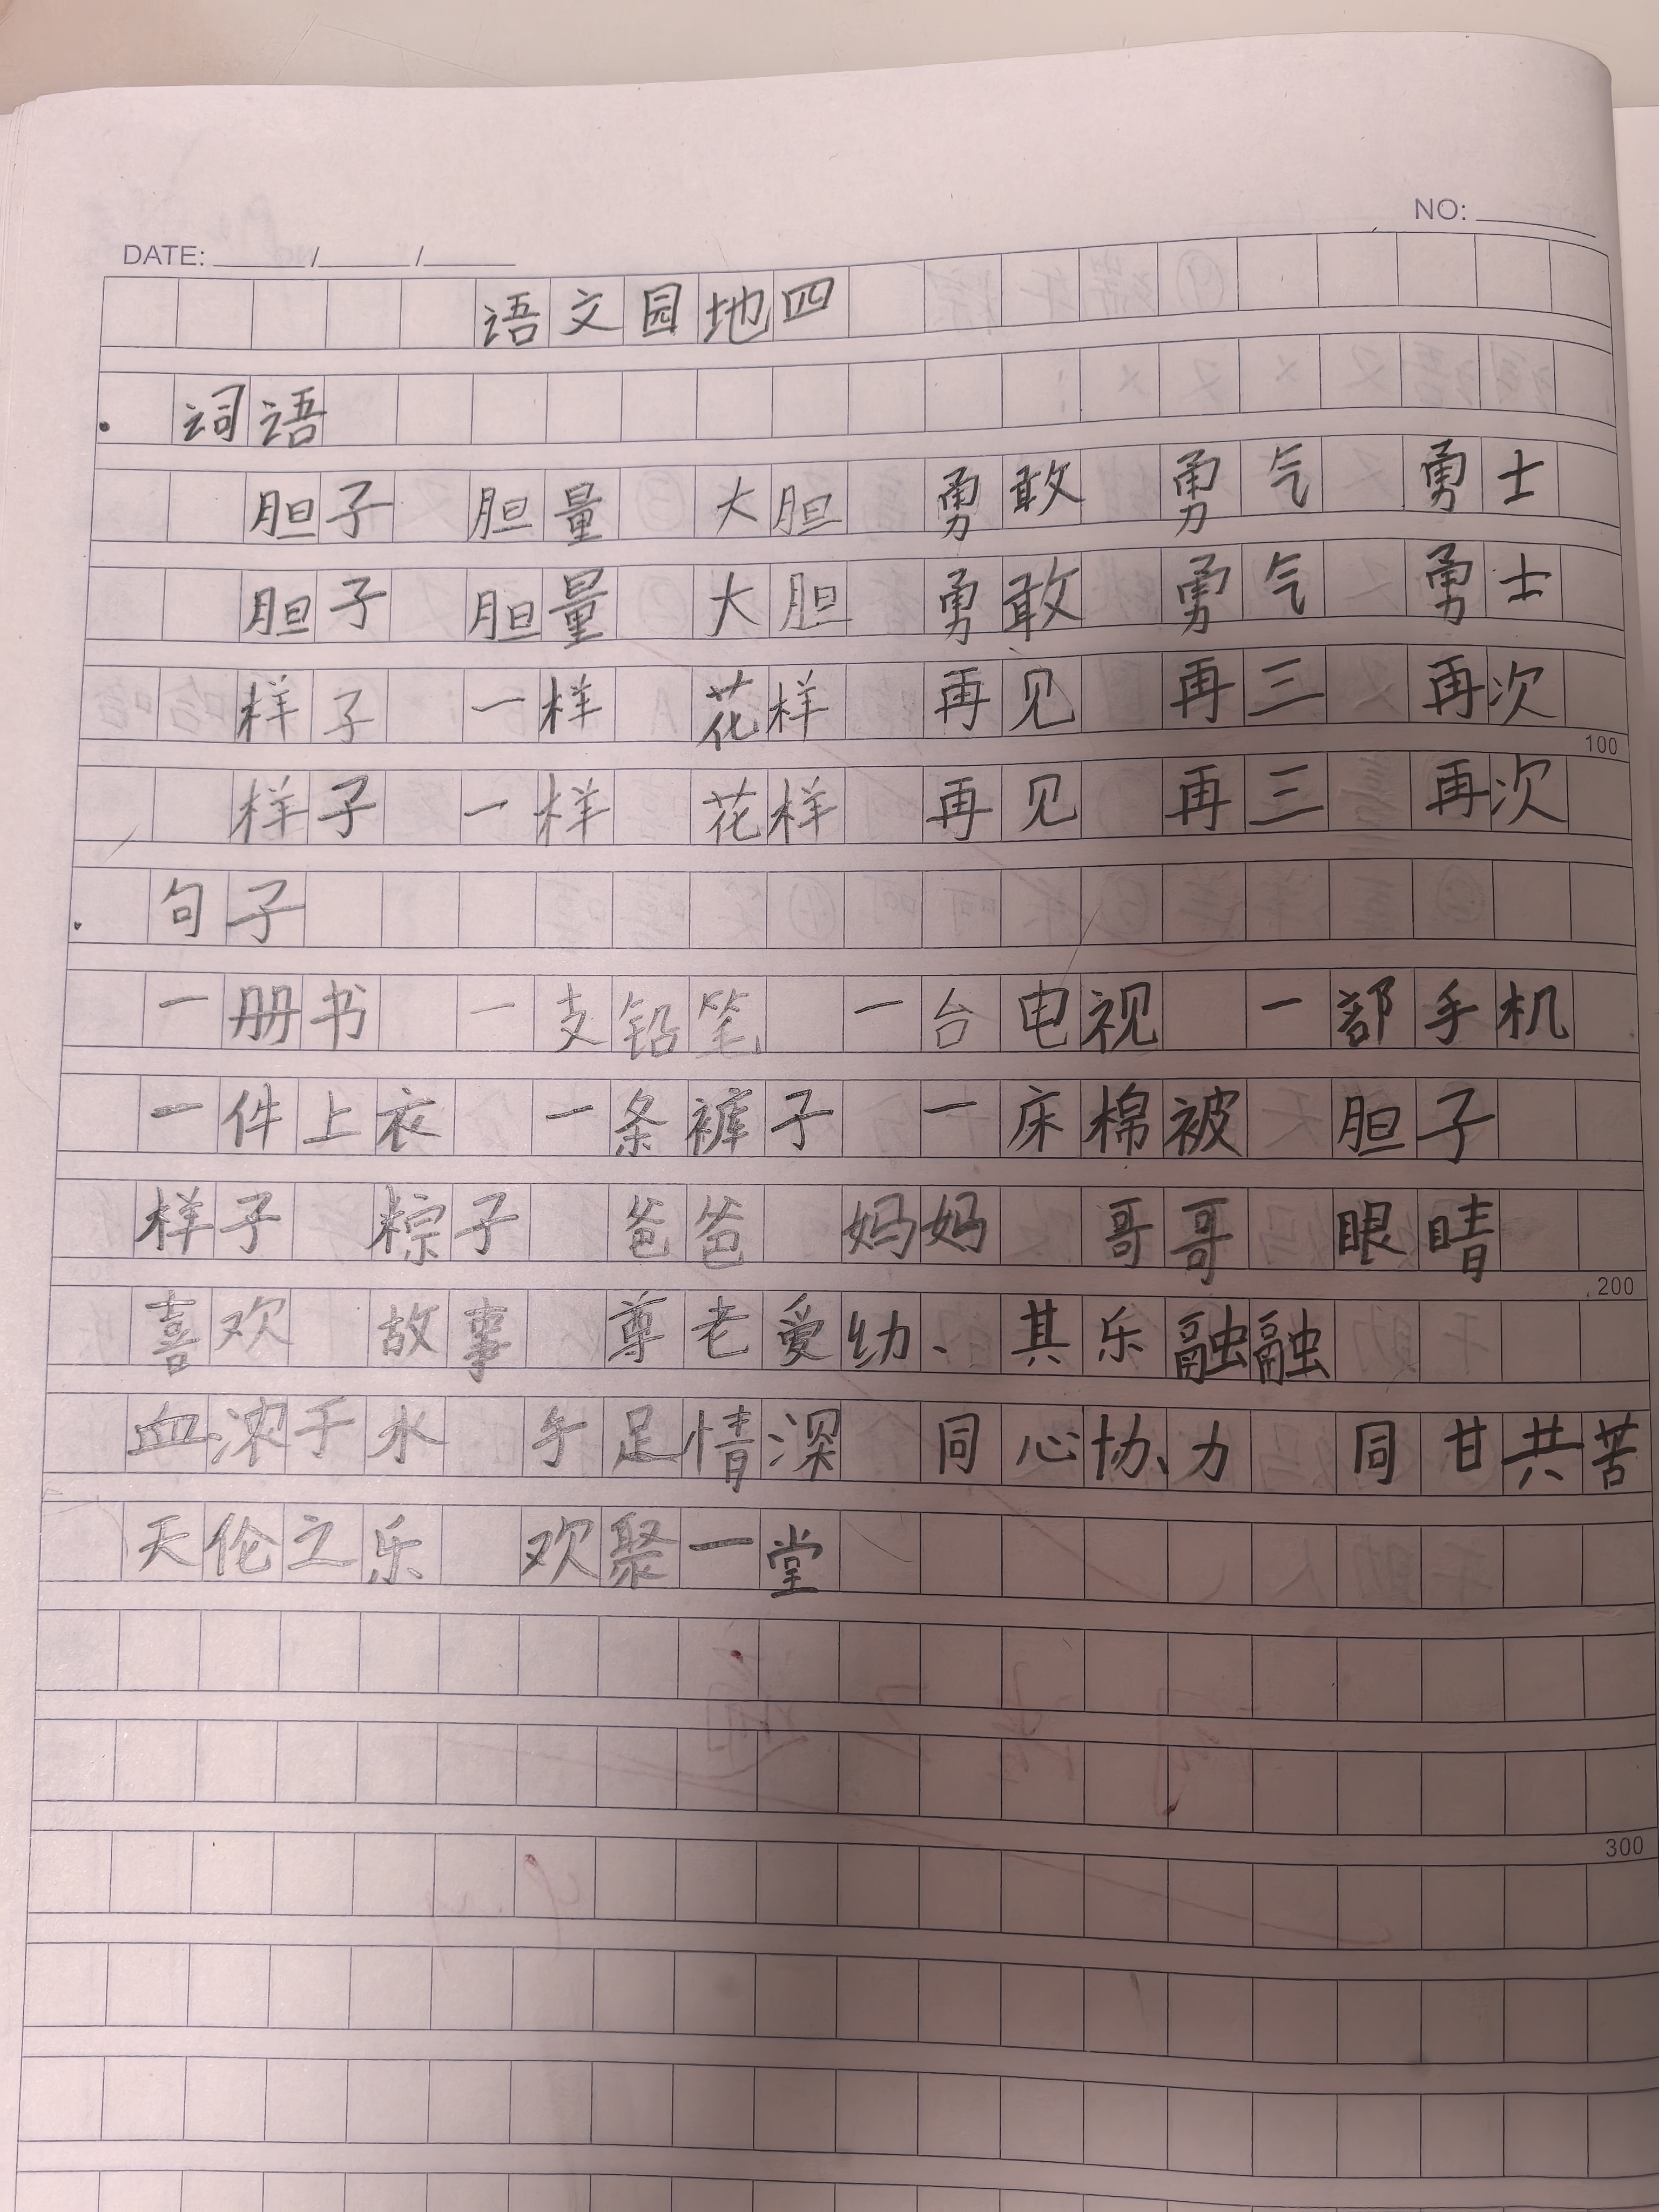 NO:
DATE: / /
语文园地四
· 词语
胆子 胆量 大胆 勇敢 勇气 勇士
胆子 胆量 大胆 勇敢 勇气 勇士
样子 一样 花样 再见 再三 再次
100
样子 一样 花样 再见 再三 再次
· 句子
一册书 一支铅笔 一台电视 一部手机
一件上衣 一条裤子 一床棉被 胆子
样子 粽子 爸爸 妈妈 哥哥 眼睛
200
喜欢 故事 尊老爱幼、其乐融融
血浓于水 手足情深 同心协力 同甘共苦
天伦之乐 欢聚一堂
300